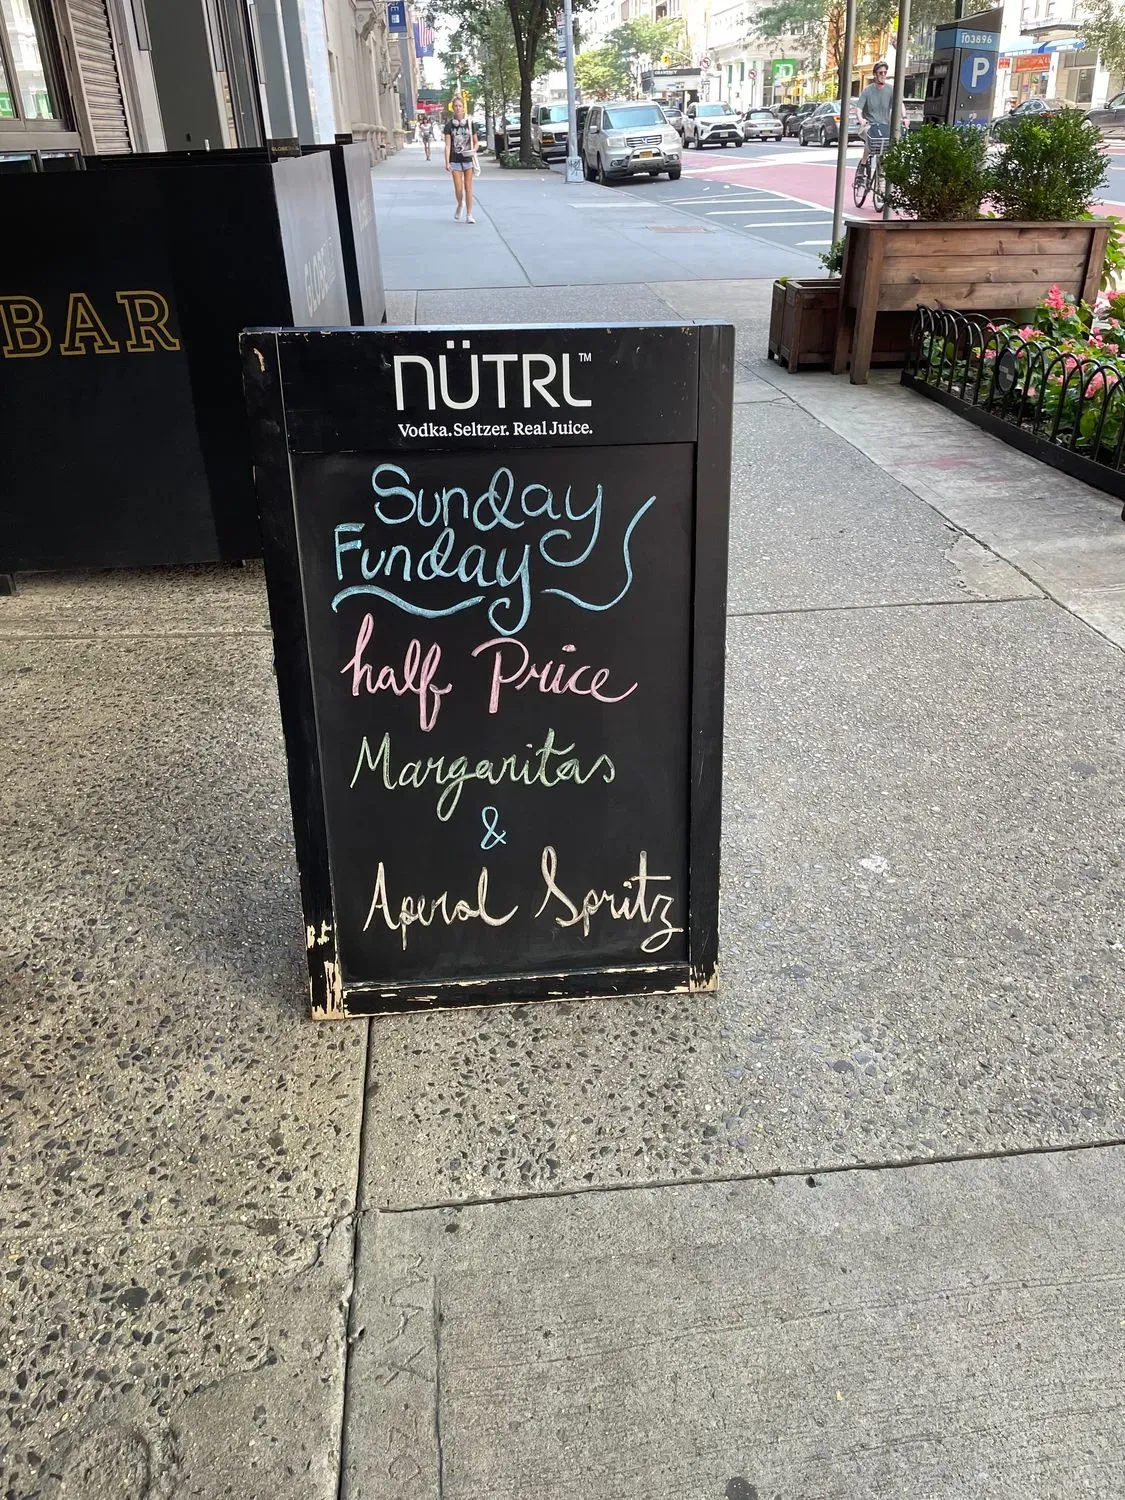 BAR
NÜTRL™
Vodka. Seltzer. Real Juice.
Sunday
Funday
half Price
Margaritas
&
Aperol Spritz
103896
P